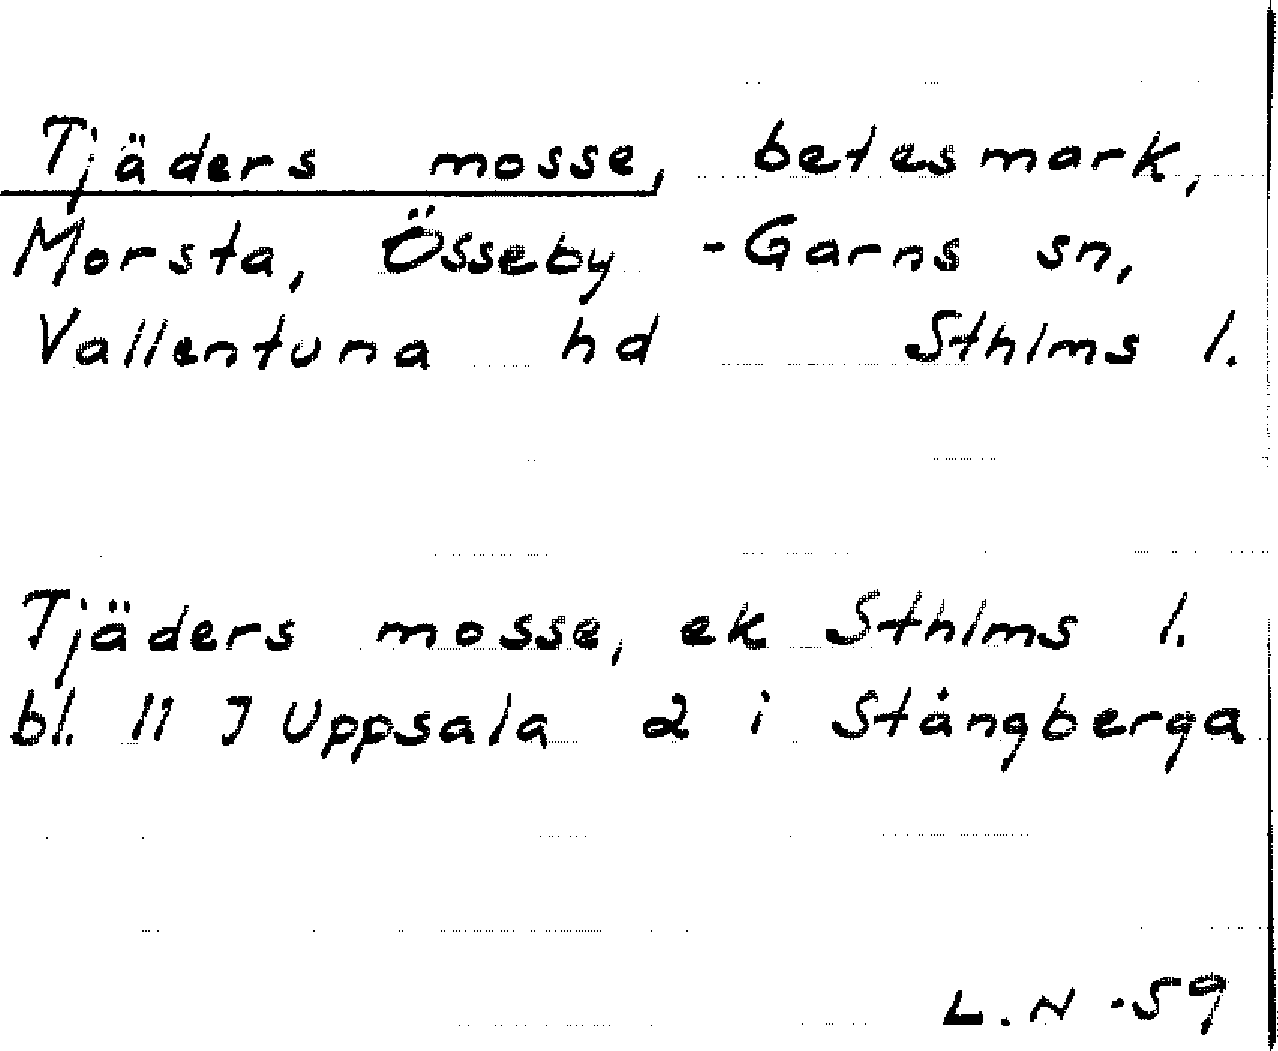 Tjäders mosse, betesmark,
Morsta, Össeby - Garns sn,
Vallentuna hd Sthlms l.
Tjäders mosse, ek Sthlms l.
bl. 11 J Uppsala 2 i Stångberga
L.N -59